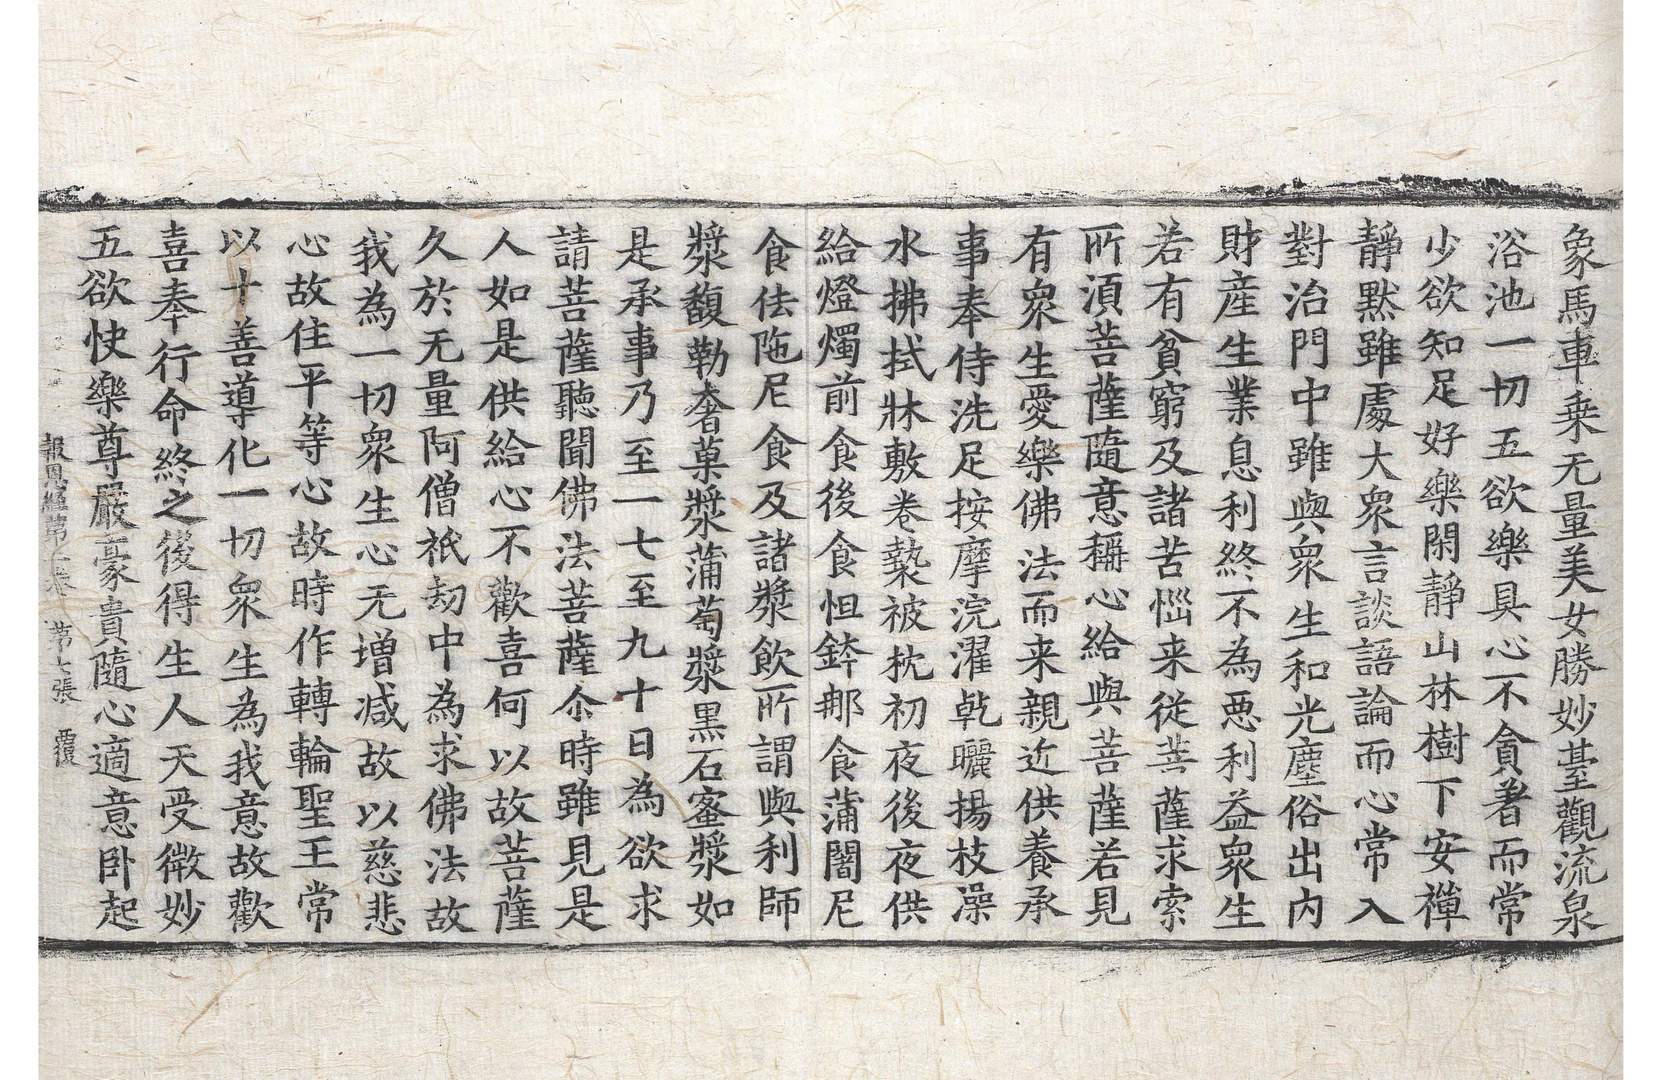 象馬車乗无量美女勝妙䑓觀流泉
浴池一切五欲樂具心不貪著而常
少欲知足好樂閑靜山林樹下安禅
靜黙雖處大衆言談語論而心常入
對治門中雖與衆生和光塵俗出内
財産生業息利終不為惡利益衆生
若有貧窮及諸苦惱来従菩薩求索
所湏菩薩隨意稱心給與菩薩若見
有衆生愛樂佛法而来親近供養承
事奉侍洗足按摩浣濯乾曬揚枝澡
水拂拭牀敷卷㯿被枕初夜後夜供
給燈燭前食後食怛鉢那食蒲闍尼
食佉陁尼食及諸漿飲所謂與利師
漿馥勒奢菓漿蒲萄漿黒石蜜漿如
是承事乃至一七至九十日為欲求
請菩薩聽聞佛法菩薩尒時雖見是
人如是供給心不歡喜何以故菩薩
久於无量阿僧祇劫中為求佛法故
我為一切衆生心无増减故以慈悲
心故住平等心故時作轉輪聖王常
以十善導化一切衆生為我意故歡
喜奉行命終之後得生人天受微妙
五欲快樂尊嚴豪貴隨心適意卧起
報恩經苐 卷 苐七張 覆